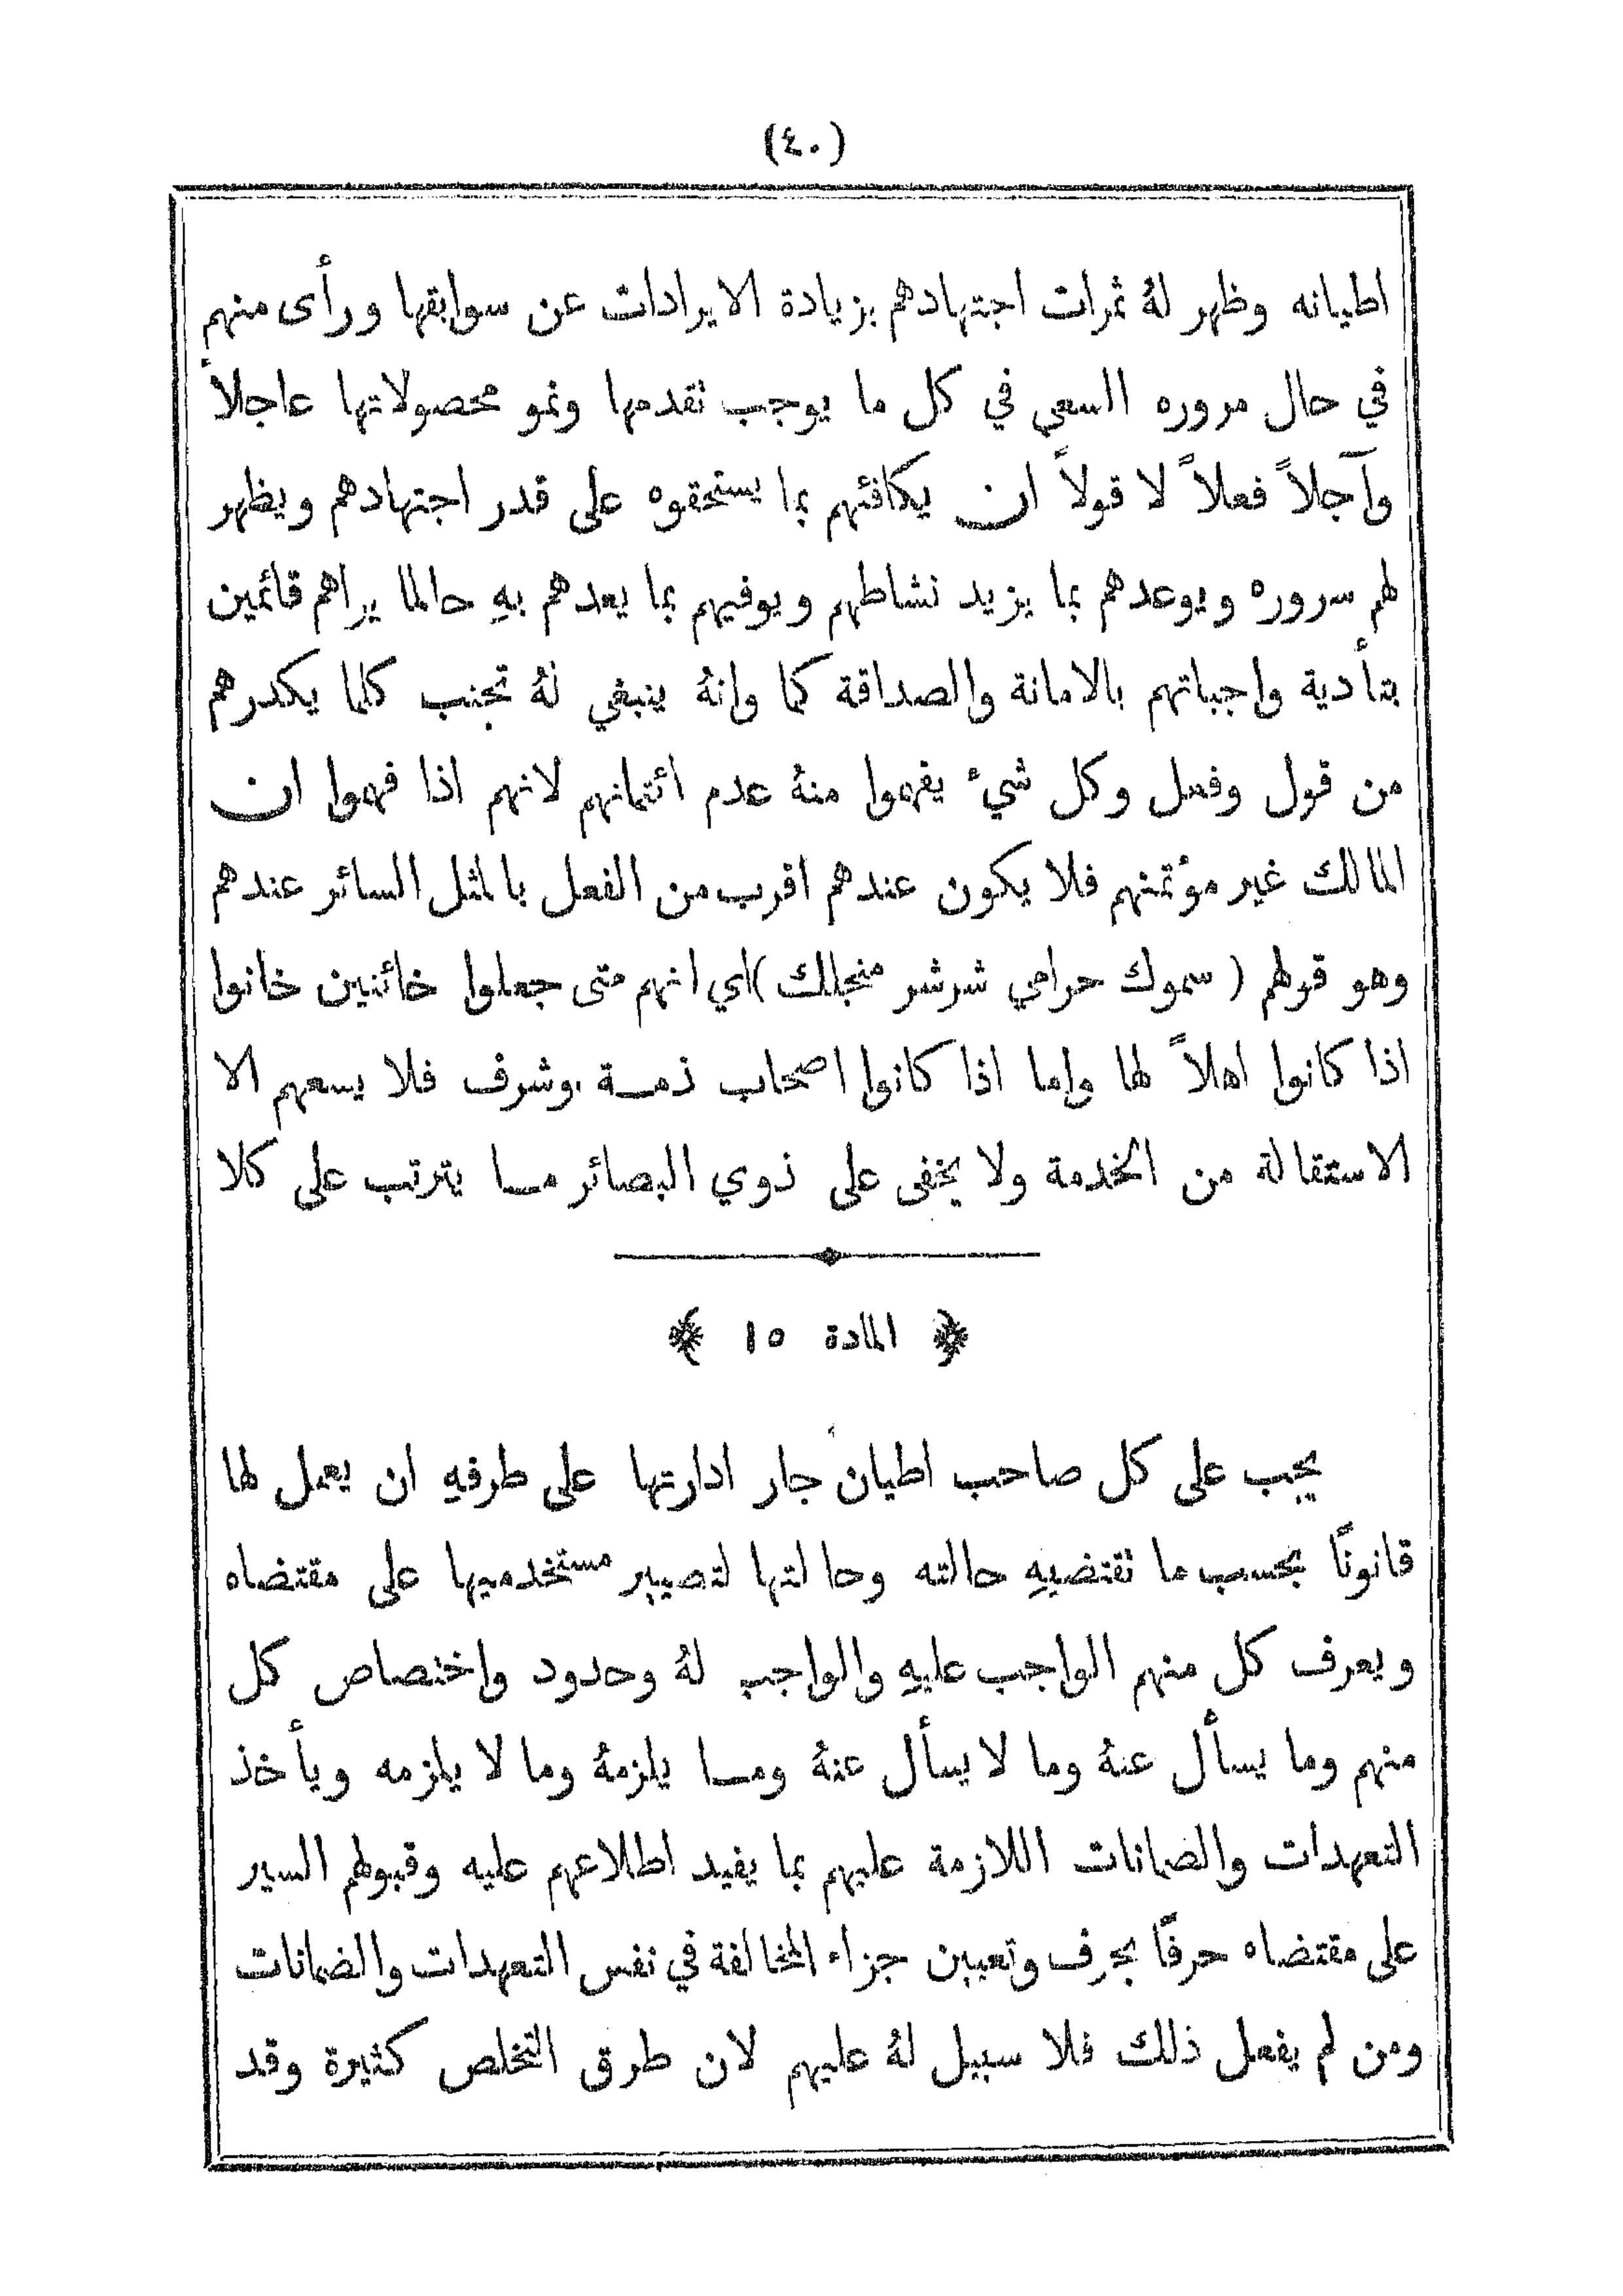 (٤٠)
اطيانه وظهر لهُ ثمرات اجتهادهم بزيادة الايرادات عن سوابقها ورأى منهم
في حال مروره السعي في كل ما يوجب نقدمها ونمو محصولاتها عاجلاً
وآجلاً فعلاً لا قولاً ان يكافئهم بما يستحقوه على قدر اجتهادهم ويظهر
لهم سروره ويوعدهم بما يزيد نشاطهم ويوفيهم بما يعدهم بهِ حالما يراهم قائمين
بتأدية واجباتهم بالامانة والصداقة كما وانهُ ينبغي لهُ تجنب كلما يكدرهم
من قول وفعل وكل شيءٌ يفهموا منهُ عدم ائتمانهم لانهم اذا فهموا ان
المالك غير مؤتمنهم فلا يكون عندهم اقرب من الفعل بالمثل السائر عندهم
وهو قولهم (سموك حرامي شرشر منجلك) اي انهم متى جعلوا خائنين خانوا
اذا كانوا اهلاً لها واما اذا كانوا اصحاب ذمة وشرف فلا يسعهم الا
الاستقالة من الخدمة ولا يخفى على ذوي البصائر ما يترتب على كلا
﴿ المادة ١٥ ﴾
يجب على كل صاحب اطيان جار ادارتها على طرفهِ ان يعمل لها
قانونًا بحسب ما نقتضيهِ حالته وحالتها لتصيير مستخدميها على مقتضاه
ويعرف كل منهم الواجب عليهِ والواجب لهُ وحدود واختصاص كل
منهم وما يسأل عنهُ وما لا يسأل عنهُ وما يلزمهُ وما لا يلزمه ويأخذ
التعهدات والضمانات اللازمة عليهم بما يفيد اطلاعهم عليه وقبولهم السير
على مقتضاه حرفًا بحرف وتعيين جزاء المخالفة في نفس التعهدات والضمانات
ومن لم يفعل ذلك فلا سبيل لهُ عليهم لان طرق التخلص كثيرة وقد